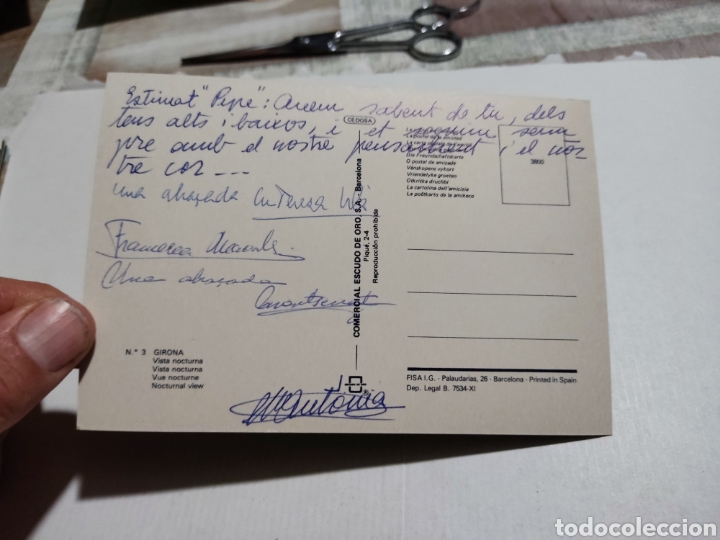 Estimat "Pepe": Anem sabent de tu, dels
teus alts i baixos, i et
pre amb el nostre pensament i el nos
tre cor ---
Una abraçada Mª Teresa
Francesca
Una abraçada
Montserrat
Mª Antonia
CEDOSA
Die Freundschaftskarte
O postal de amizade
Vänskapens vykort
Vriendelyke groeten
La cartolina dell'amicizia
3800
COMERCIAL ESCUDO DE ORO, S.A. - Barcelona
Piqué, 2-4
Reproducción prohibida
N.º 3 GIRONA
Vista nocturna
Vista nocturna
Vue nocturne
Nocturnal view
FISA I.G. - Palaudarias, 26 - Barcelona - Printed in Spain
Dep. Legal B. 7534-XI
todocoleccion